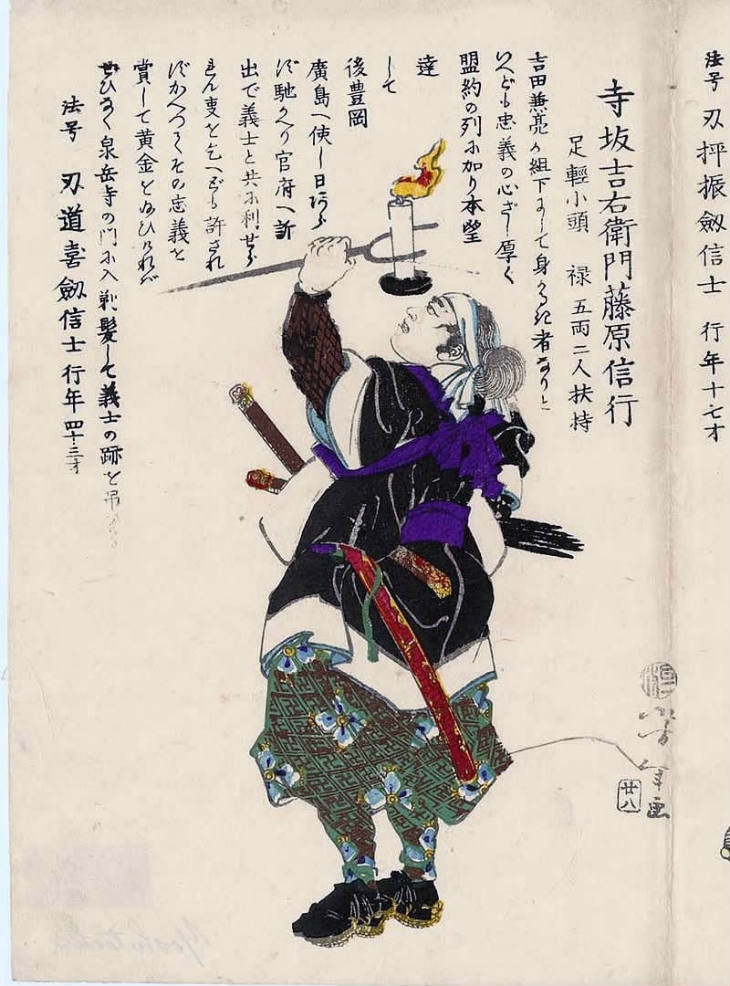 法号 刃抨振劔信士 行年十七才
寺坂吉右衛門藤原信行
足輕小頭 禄 五両二人扶持
吉田兼亮の組下にして身かろき者なりと
いへども忠義の心ざし厚く
盟約の列に加り本望
達
して
後豊岡
廣島へ使し日ならず
馳かへり官府へ訴
出で義士と共に刑せら
れん事を乞へども許され
ずかへつてその忠義を
賞して黄金を
ぜひなく泉岳寺の門に入剃髪して義士の跡を吊
法号 刃道喜劔信士 行年四十三才
芳年画
廿八